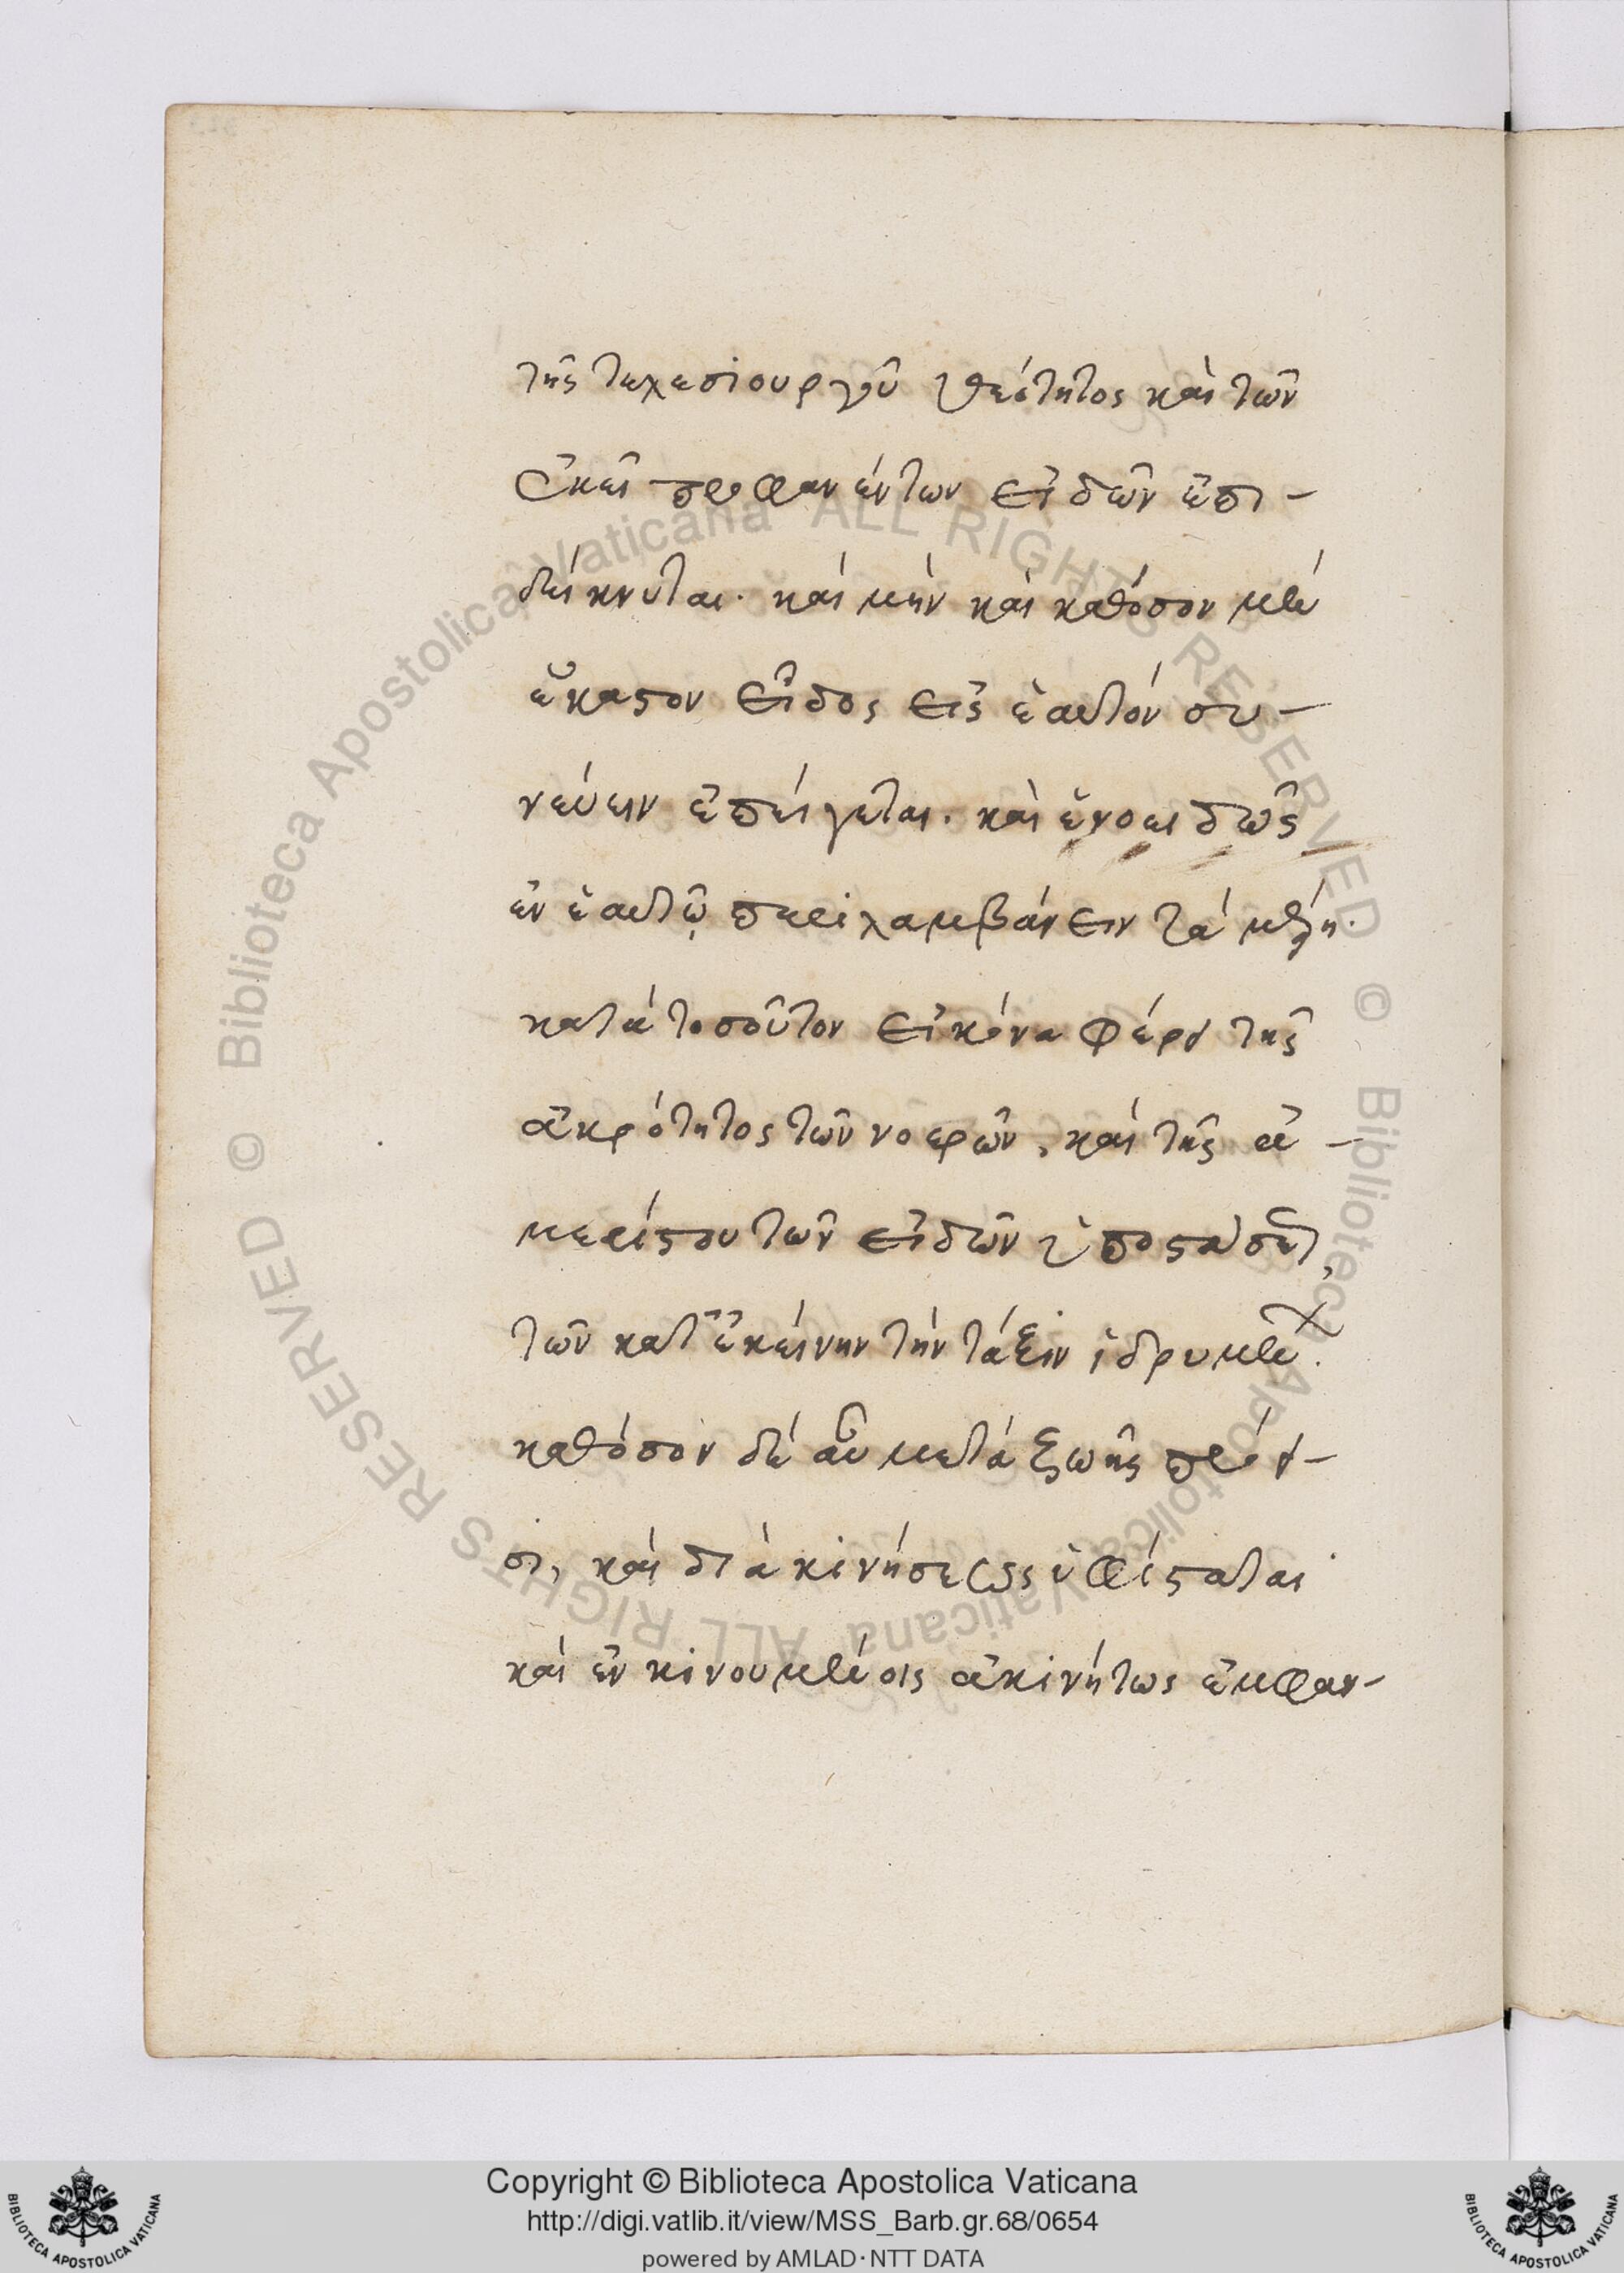 τῆς τελεσιουργοῦ θεότητος καὶ τῶν
ἐκεῖ προφανέντων εἰδῶν ἐπι-
δείκνυται. καὶ μὴν καὶ καθόσον μὲν
ἕκαστον εἶδος εἰς ἑαυτὸν συ-
νεύειν ἐπείγεται. καὶ ἑνοειδῶς
ἐν ἑαυτῷ περιλαμβάνειν τὰ μέρη.
κατὰ τοσοῦτον εἰκόνα φέρει τῆς
ἀκρότητος τῶν νοερῶν, καὶ τῆς ἀ-
μερίστου τῶν εἰδῶν ὑποστάσεως,
τῶν κατ' ἐκείνην τὴν τάξιν ἱδρυμένων.
καθόσον δὲ αὖ μετὰ ζωῆς πρόει-
σι, καὶ διὰ κινήσεως ὑφίσταται
καὶ ἐν κινουμένοις ἀκινήτως ἐμφαν-
Copyright © Biblioteca Apostolica Vaticana
http://digi.vatlib.it/view/MSS_Barb.gr.68/0654
powered by AMLAD · NTT DATA
BIBLIOTECA APOSTOLICA VATICANA
BIBLIOTECA APOSTOLICA VATICANA
© Biblioteca Apostolica Vaticana ALL RIGHTS RESERVED © Biblioteca Apostolica Vaticana ALL RIGHTS RESERVED